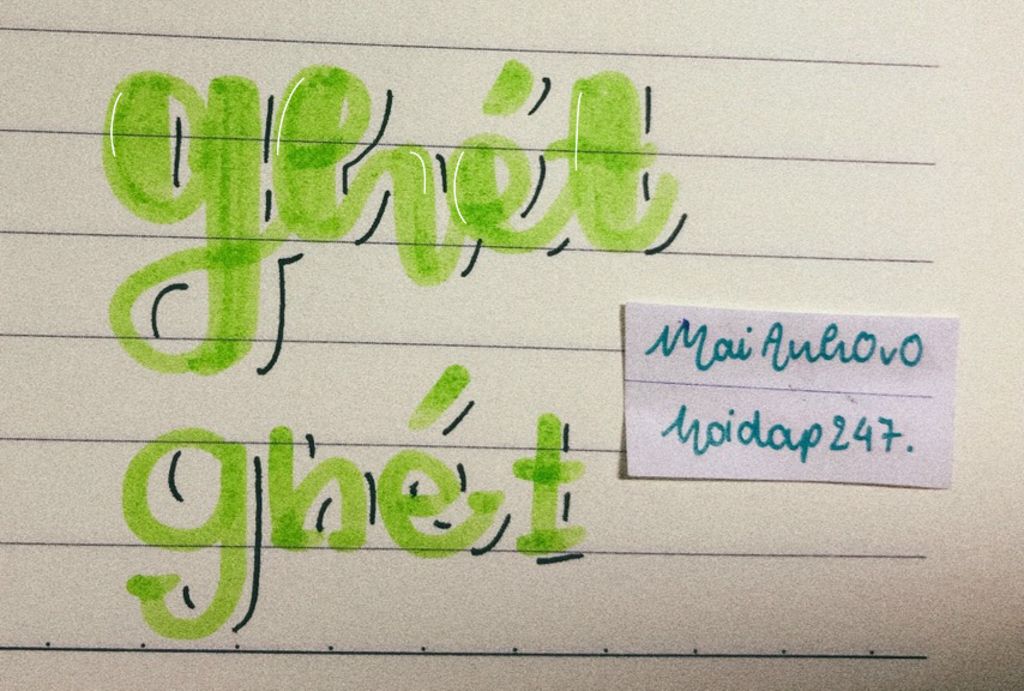 ghét
ghét
MaiAnhOvO
hoidap247.